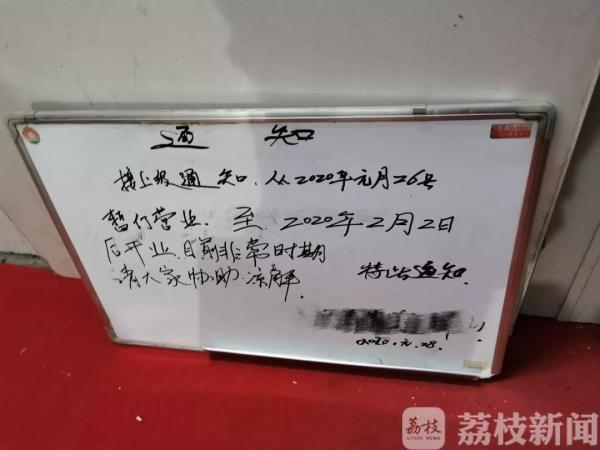 通 知
接上级通知.从2020年元月26号
暂停营业.至2020年2月2日
后开业.目前非常时期
请大家协助.凉解. 特此通知.
2020.元.28.
荔枝
LITCHI NEWS
荔枝新闻